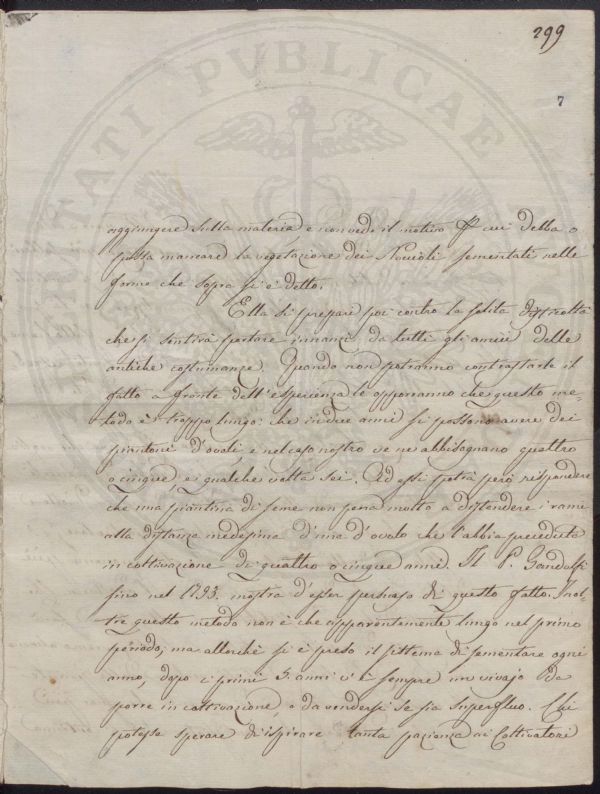 299
7
aggiungere sulla materia e non vedo il motivo p cui debba o
possa mancare la vegetazione dei Nocioli sementati nelle
forme che sopra si è detto.
Ella si prepare poi contro la solita difficoltà
che si sentirà portare innanzi da tutti gli amici delle
antiche costumanze. Quando non potranno contrastarle il
fatto a fronte dell'esperienza le opporranno che questo me=
todo è troppo lungo: che in due anni si possono avere dei
piantoni d'ovoli e nel caso nostro ve ne abbisognano quattro
o cinque e qualche volta sei. Ad essi potrà però rispondere
che una piantina di seme non pena molto a distendere i rami
alla distanza medesima d'una d'ovolo che l'abbia preceduta
in coltivazione di quattro o cinque anni. Il P. Gandolfi
sino nel 1793. mostra d'esser persuaso di questo fatto. Inol-
tre questo metodo non è che apparentemente lungo nel primo
periodo; ma allorchè si è preso il sistema di sementare ogni
anno, dopo i primi 5. anni v'è sempre un vivajo da
porre in coltivazione, o da vendersi se sia superfluo. Chi
potesse sperare di ispirare tanta pazienza ai Coltivatori
TATI PUBLICAE